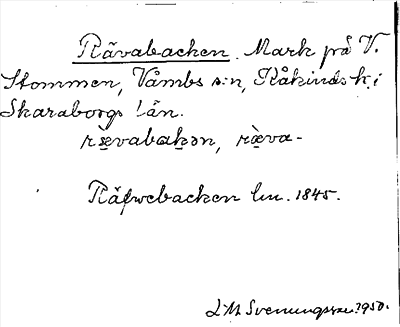 Rävabacken. Mark på V.
Stommen, Våmbs s:n, Kåkinds h., i
Skaraborgs län.
rævabakən, ræva-
Räfwebacken lm. 1845.
1950.